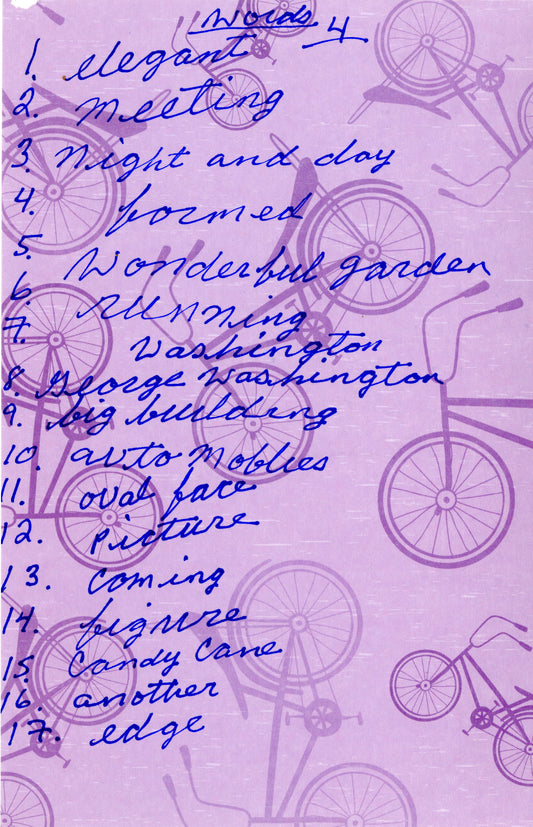 Words 4
1. elegant
2. meeting
3. Night and day
4. formed
5. Wonderful garden
6. running
7. Washington
8. George Washington
9. big building
10. auto Moblies
11. oval face
12. Picture
13. Coming
14. figure
15. Candy Cane
16. another
17. edge